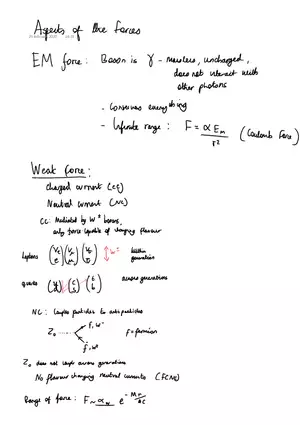 Aspects of the Forces
EM force: Boson is γ - massless, uncharged,
does not interact with
other photons
- Conserves everything
- Infinite range: F = α Em / r² (Coulomb Force)
Weak force:
Charged current (CC)
Neutral current (NC)
CC: Mediated by W± bosons,
only force capable of changing flavour
Leptons (νe e) (νμ μ) (ντ τ) ↕ W± within
generation
quarks (u d) (c s) (t b) across generations
NC: Couples particles to antiparticles
Z₀ f, W⁺ f = fermion
f̄, W⁻
Z₀ does not couple across generations
No flavour changing neutral currents (FCNC)
Range of force: F ~ αw